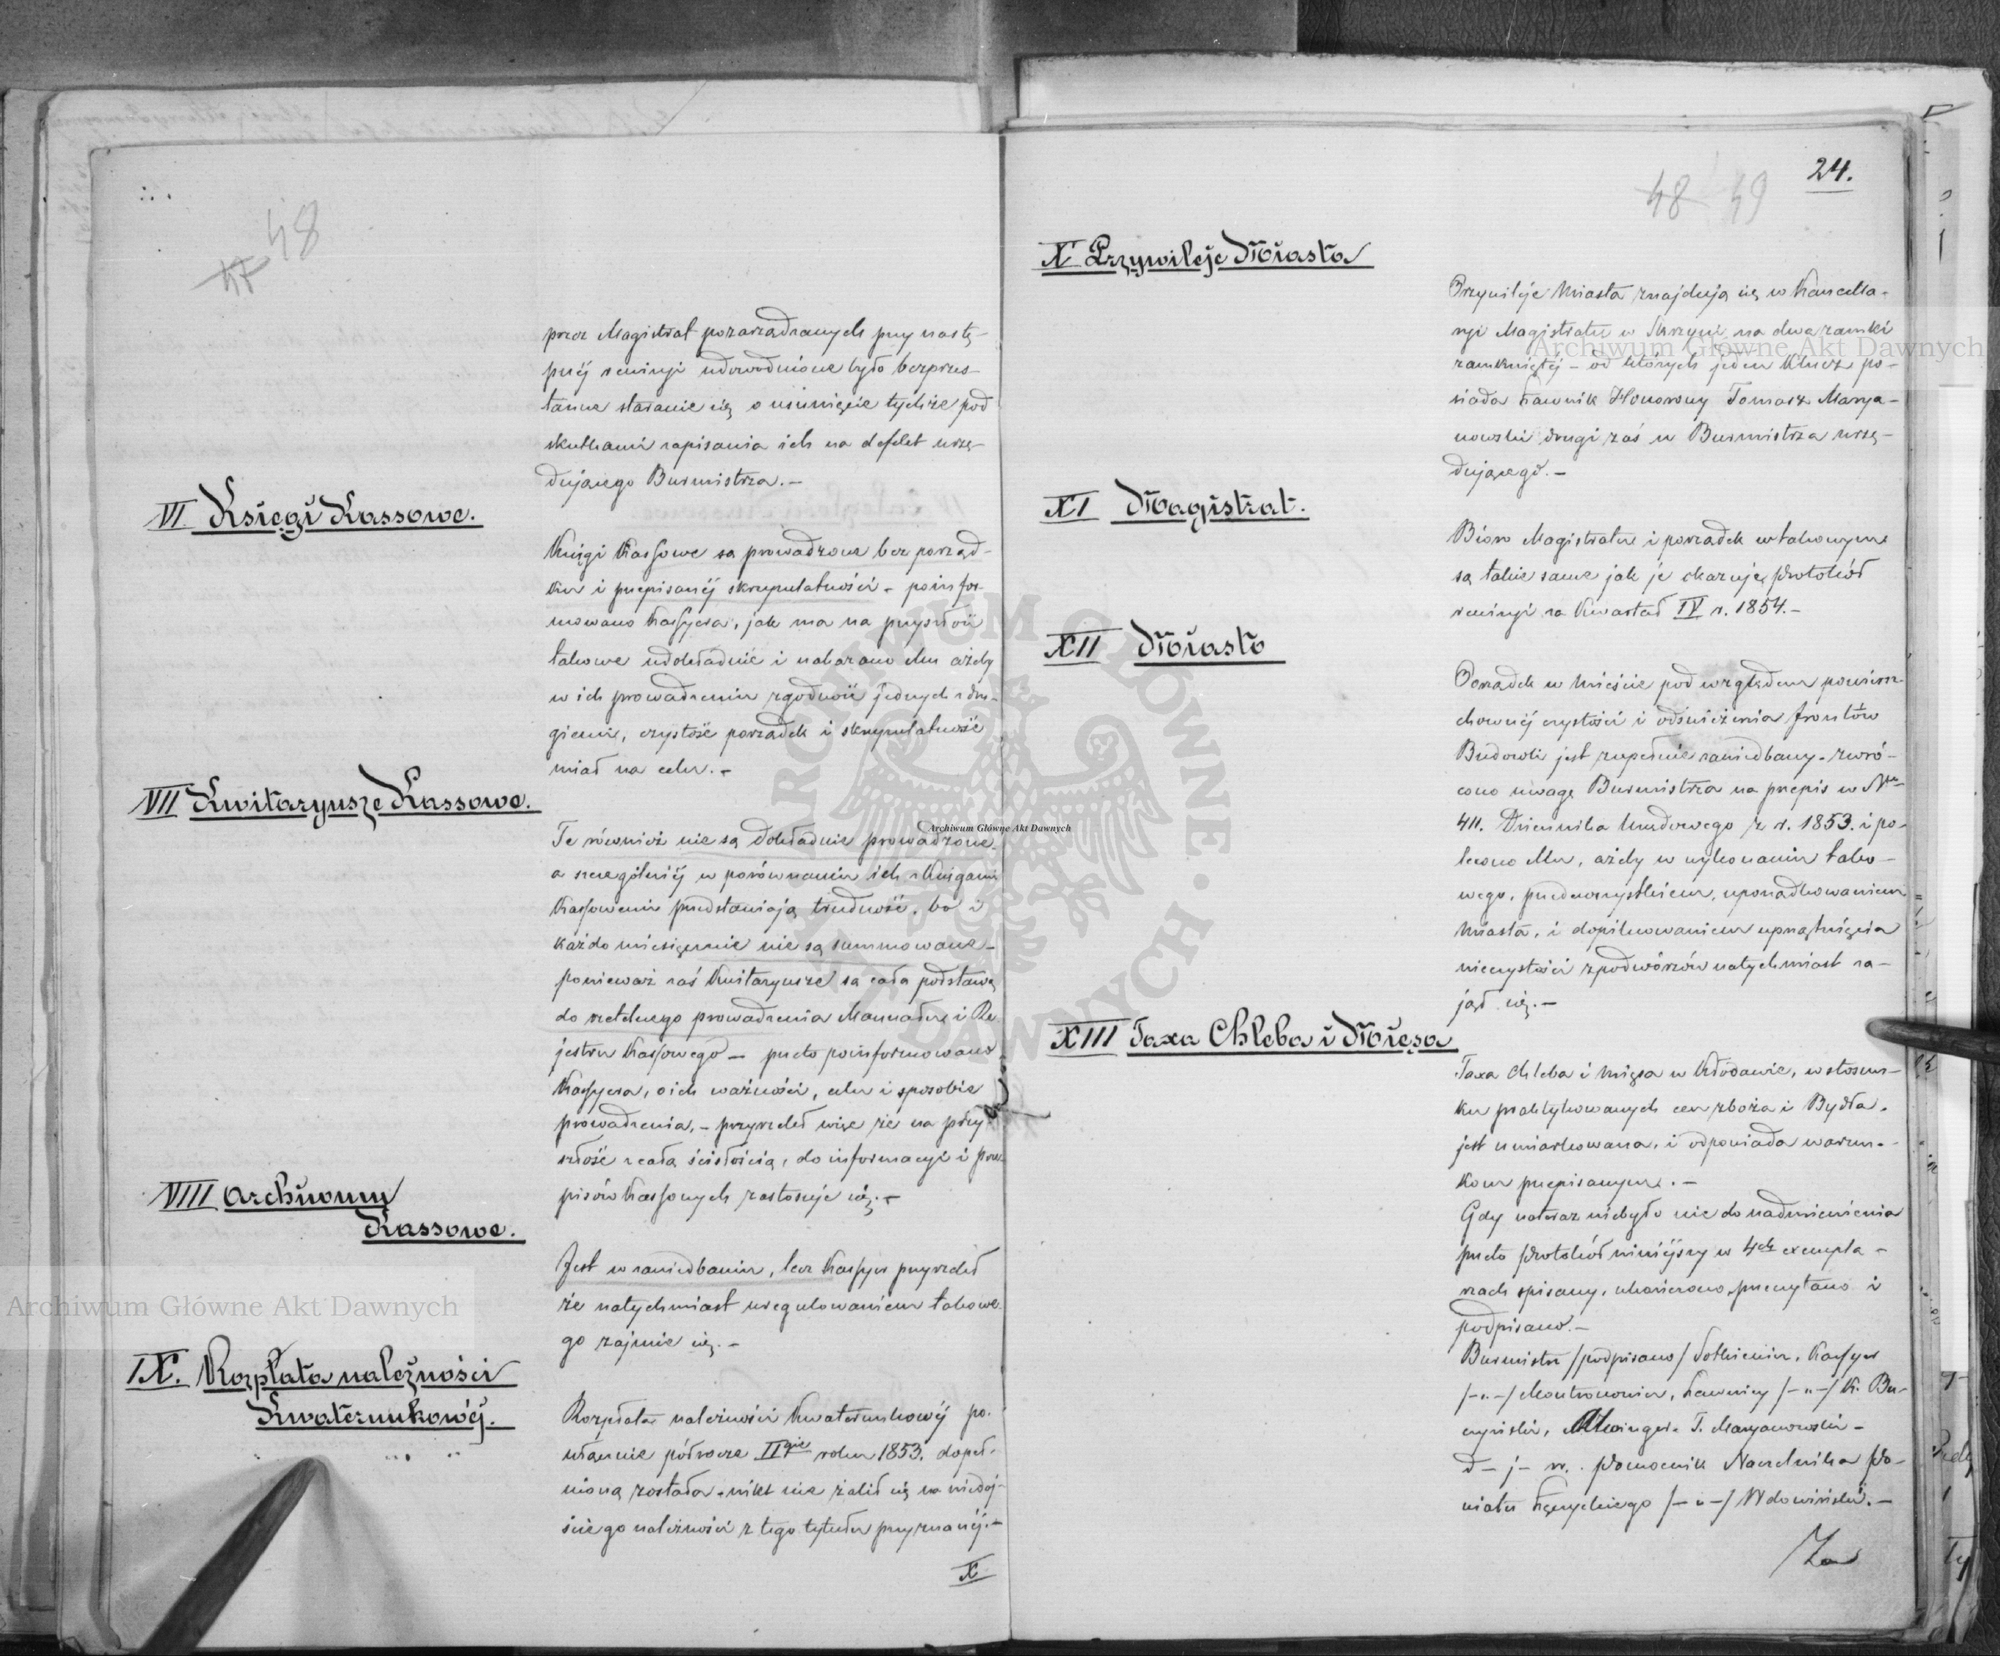 48
47
przez Magistrat pozarządzanych przy nastę-
pnéj rewizyi udowodnione było bezprzes-
tanne staranie się o usunięcie tychże pod
skutkami zapisania ich na defekt urzę-
dującego Burmistrza.-
VI Księgi Kassowe.
Księgi Kassowe są prowadzone bez porząd-
ku i przepisanéj skrupulatności - poinfor-
mowano Kassyera, jak ma na przyszłość
takowe udokładnić i nakazano Mu ażeby
w ich prowadzeniu zgodność jednych z dru-
giemi, czystość porządek i skrupulatność
miał na celu.-
VII Kwitaryusze Kassowe.
Te również nie są dokładnie prowadzone
a szczególniéj w porównaniu ich z Księgami
Kassowemi przedstawiają trudność, bo i
każdo miesięcznie nie są summowane -
ponieważ zaś Kwitaryusze są całą podstawą
do rzetelnego prowadzenia Manuału i Re-
jestru Kassowego - przeto poinformowano
Kassyera, o ich ważności, celu i sposobie
prowadzenia, - przyrzekł więc że na przy-
szłość z całą ścisłością, do informacyi i prze-
pisów Kassowych zastosuje się.-
VIII Archiwum
Kassowe.
Jest w zaniedbaniu, lecz Kassyer przyrzekł
że natychmiast uregulowaniem takowe-
go zajmie się.-
IX. Rozpłata należności
Kwaterunkowéj.
Rozpłata należności Kwaterunkowéj po.
właśnie półrocze II gie roku 1853. dopeł-
nioną została - nikt nie żalił się na niedoj-
ście go należności z tego tytułu przyznanéj.-
X
24.
48 49
X Przywileje Miasta
Przywileje Miasta znajdują się w Kancella-
ryi Magistratu w Skrzyni na dwa zamki
zamkniętéj - od których jeden Klucz po-
siada Ławnik Honorowy Tomasz Marya-
nowski drugi zaś u Burmistrza urzę-
dującego.-
XI Magistrat.
Bióro Magistratu i porządek w takowym
są takie same jak je okazuje Protokół
rewizyi za Kwartał IV r. 1854.-
XII Miasto
Porządek w Mieście pod względem powierz-
chownéj czystości i odświeżenia frontów
Budowli jest zupełnie zaniedbany - zwró-
cono uwagę Burmistrza na przepis w Nrze
411. Dziennika Urzędowego z r. 1853. i po-
lecono Mu, ażeby w wykonaniu tako-
wego, przedewszystkiem, uporządkowaniem
Miasta, i dopilnowaniem uprzątnięcia
nieczystości z podwórzów natychmiast za-
jął się.-
XIII Taxa Chleba i Mięsa
Taxa Chleba i Mięsa w Kłodawie, w stosun-
ku praktykowanych cen zboża i Bydła.
jest umiarkowana, i odpowiada warun-
kom przepisanym.-
Gdy nateraz niebyło nic do nadmienienia
przeto Protokół niniejszy w 4ch exempla-
rzach spisany, ukończono, przeczytano i
podpisano.-
Burmistrz /podpisano/ Kassyer
/-"-/ Ławnicy /-"-/ K. Bu-
T. Maryanowski -
d - j - w. Pomocnik Naczelnika Po-
wiatu Łęczyckiego /-"-/ Wdowiński.-
Za
Archiwum Główne Akt Dawnych
Archiwum Główne Akt Dawnych
Archiwum Główne Akt Dawnych
ARCHIWUM GŁÓWNE AKT DAWNYCH